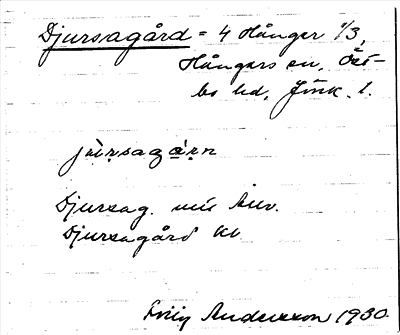 Djursagård = 4 Hånger 1/3,
Hångers sn, Öst-
bo hd, Jönk. l.
jùrsagá̱rn
Djursag. mús Anv.
Djursagård Kv
Andersson 1930.